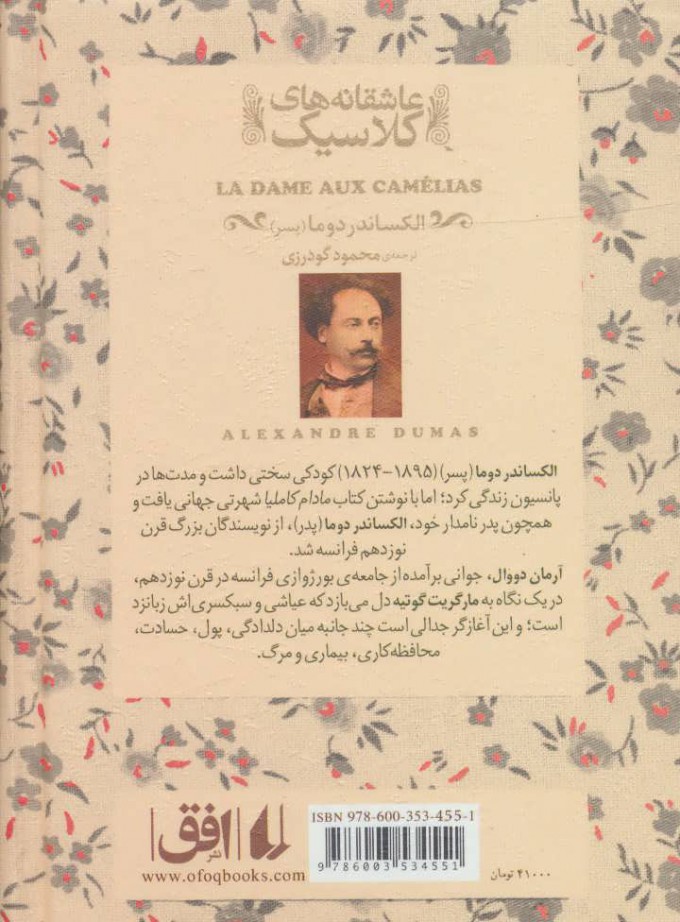 عاشقانه‌های
کلاسیک
LA DAME AUX CAMÉLIAS
الکساندر دوما (پسر)
ترجمه‌ی محمود گودرزی
ALEXANDRE DUMAS
الکساندر دوما (پسر) (۱۸۹۵-۱۸۲۴) کودکی سختی داشت و مدت‌ها در
پانسیون زندگی کرد؛ اما با نوشتن کتاب مادام کاملیا شهرتی جهانی یافت و
همچون پدر نامدار خود، الکساندر دوما (پدر)، از نویسندگان بزرگ قرن
نوزدهم فرانسه شد.
آرمان دووال، جوانی برآمده از جامعه‌ی بورژوازی فرانسه در قرن نوزدهم،
در یک نگاه به مارگریت گوتیه دل می‌بازد که عیاشی و سبکسری‌اش زبانزد
است؛ و این آغازگر جدالی است چند جانبه میان دلدادگی، پول، حسادت،
محافظه‌کاری، بیماری و مرگ.
نشر افق
www.ofoqbooks.com
ISBN 978-600-353-455-1
9 786003 534551
۴۱۰۰۰ تومان